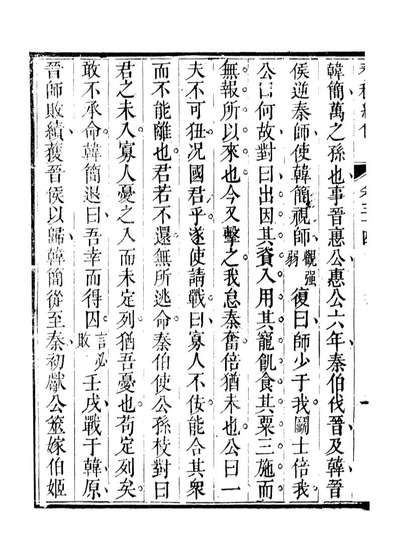 韓簡萬之孫也事晉惠公惠公六年秦伯伐晉及韓晉
侯逆秦師使韓簡視師觀強弱復曰師少于我鬭士倍我
公曰何故對曰出因其資入用其寵飢食其粟三施而
無報所以來也今又擊之我怠秦奮倍猶未也公曰一
夫不可狃况國君乎遂使請戰曰寡人不佞能合其衆
而不能離也君若不還無所逃命秦伯使公孫枝對曰
君之未入寡人憂之入而未定列猶吾憂也苟定列矣
敢不承命韓簡退曰吾幸而得囚言必敗壬戌戰于韓原
晉師敗績獲晉侯以歸韓簡從至秦初獻公筮嫁伯姬